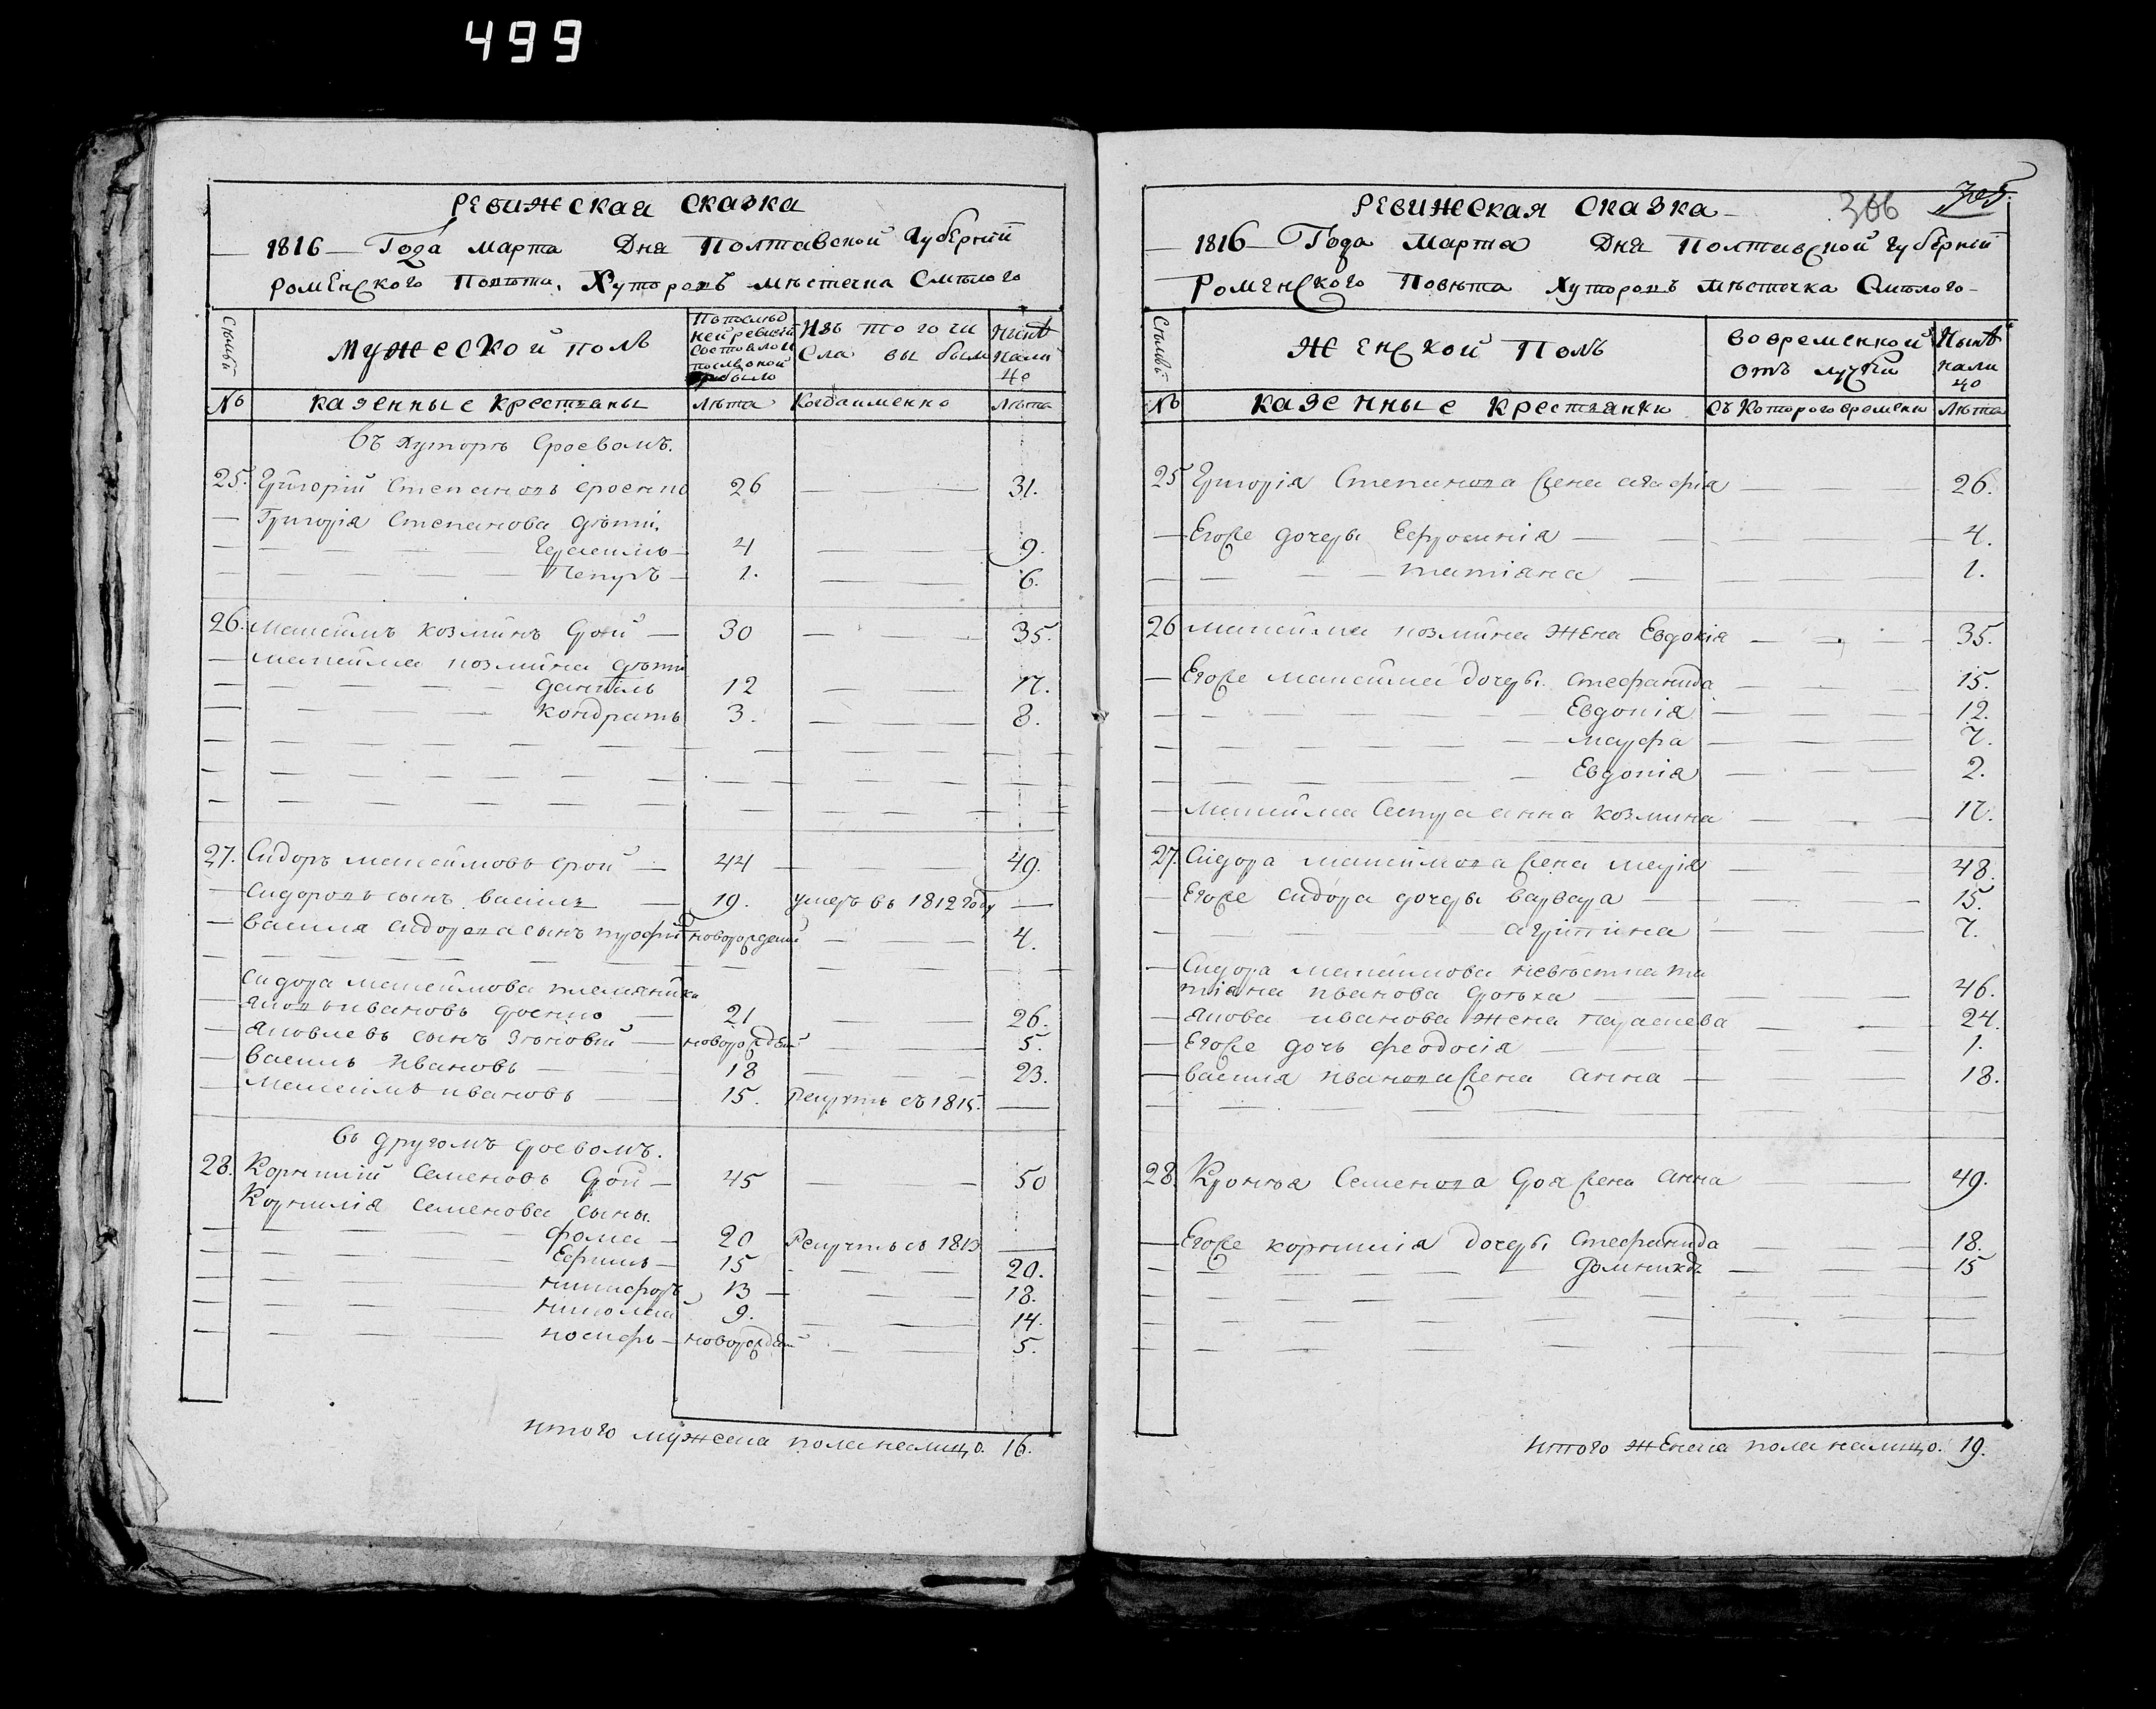 499
Ревижская Сказка
1816 Года марта Дня Полтавской Губерніи
Роменского Повѣта, Хуторовъ мѣстечка Смѣлого
Мужеской полъ
Изъ того чи
сла выбыло
Нынѣ
нали
цо
№ казенные крестьяны Лѣта Когда именно Лѣта
Въ хуторѣ Гроевомъ.
25. Григорій Степановъ 26 31.
Григорія Степанова дѣти,
Герасимъ 4 9.
Петръ 1. 6.
26. Максимъ Козминъ 30 35.
Максима Козмина дѣти
Даніилъ 12 17.
Кондратъ 3. 8.
27. Сидоръ Максимовъ 44 49.
Сидоровъ сынъ Василь 19. умеръ въ 1812 году
Василя Сидорова сынъ новорожденій 4.
Сидора Максимова племянника
Яковъ Ивановъ 21 26.
Яковлевъ сынъ новорожденій 5.
Василь Ивановъ 18 23.
Максимъ Ивановъ 15. Рекрутъ съ 1815.
Въ другомъ Гроевомъ.
28. Корнилій Семеновъ 45 50
Корнилія Семенова сыны.
Фома 20 Рекрутъ съ 1813
Ефимъ 15 20.
Никифоръ 13 18.
Николай 9. 14.
Иосифъ новорожденій 5.
Итого мужеска пола налицо. 16.
Ревижская Сказка 366 365.
1816 Года Марта Дня Полтавской Губерніи
Роменского Повѣта Хуторовъ Мѣстечка Смѣлого
Женской Полъ
Во временной
отлучки
Нынѣ
нали
цо
№ казенные крестьянки Съ которого времени Лѣта
25 Григорія Степанова жена Агафія 26.
Егоже дочеры Ефросинія 4.
Татіяна 1.
26 Максима Козмина жена Евдокія 35.
Егоже Максима дочеры Стефанида 15.
Евдокія 12.
Марфа 7.
Евдокія 2.
Максима сестра Анна Козмина 17.
27. Сидора Максимова жена Марія 48.
Егоже Сидора дочеры Варвара 15.
Агрипина 7.
Сидора Максимова невѣстка Та
тіяна Иванова 46.
Якова Иванова жена Параскева 24.
Егоже дочь Феодосія 1.
Василя Иванова жена Анна 18.
28. Семенова жена Анна 49.
Егоже Корнилія дочеры Стефанида 18.
Домникія 15
Итого женска пола налицо. 19.